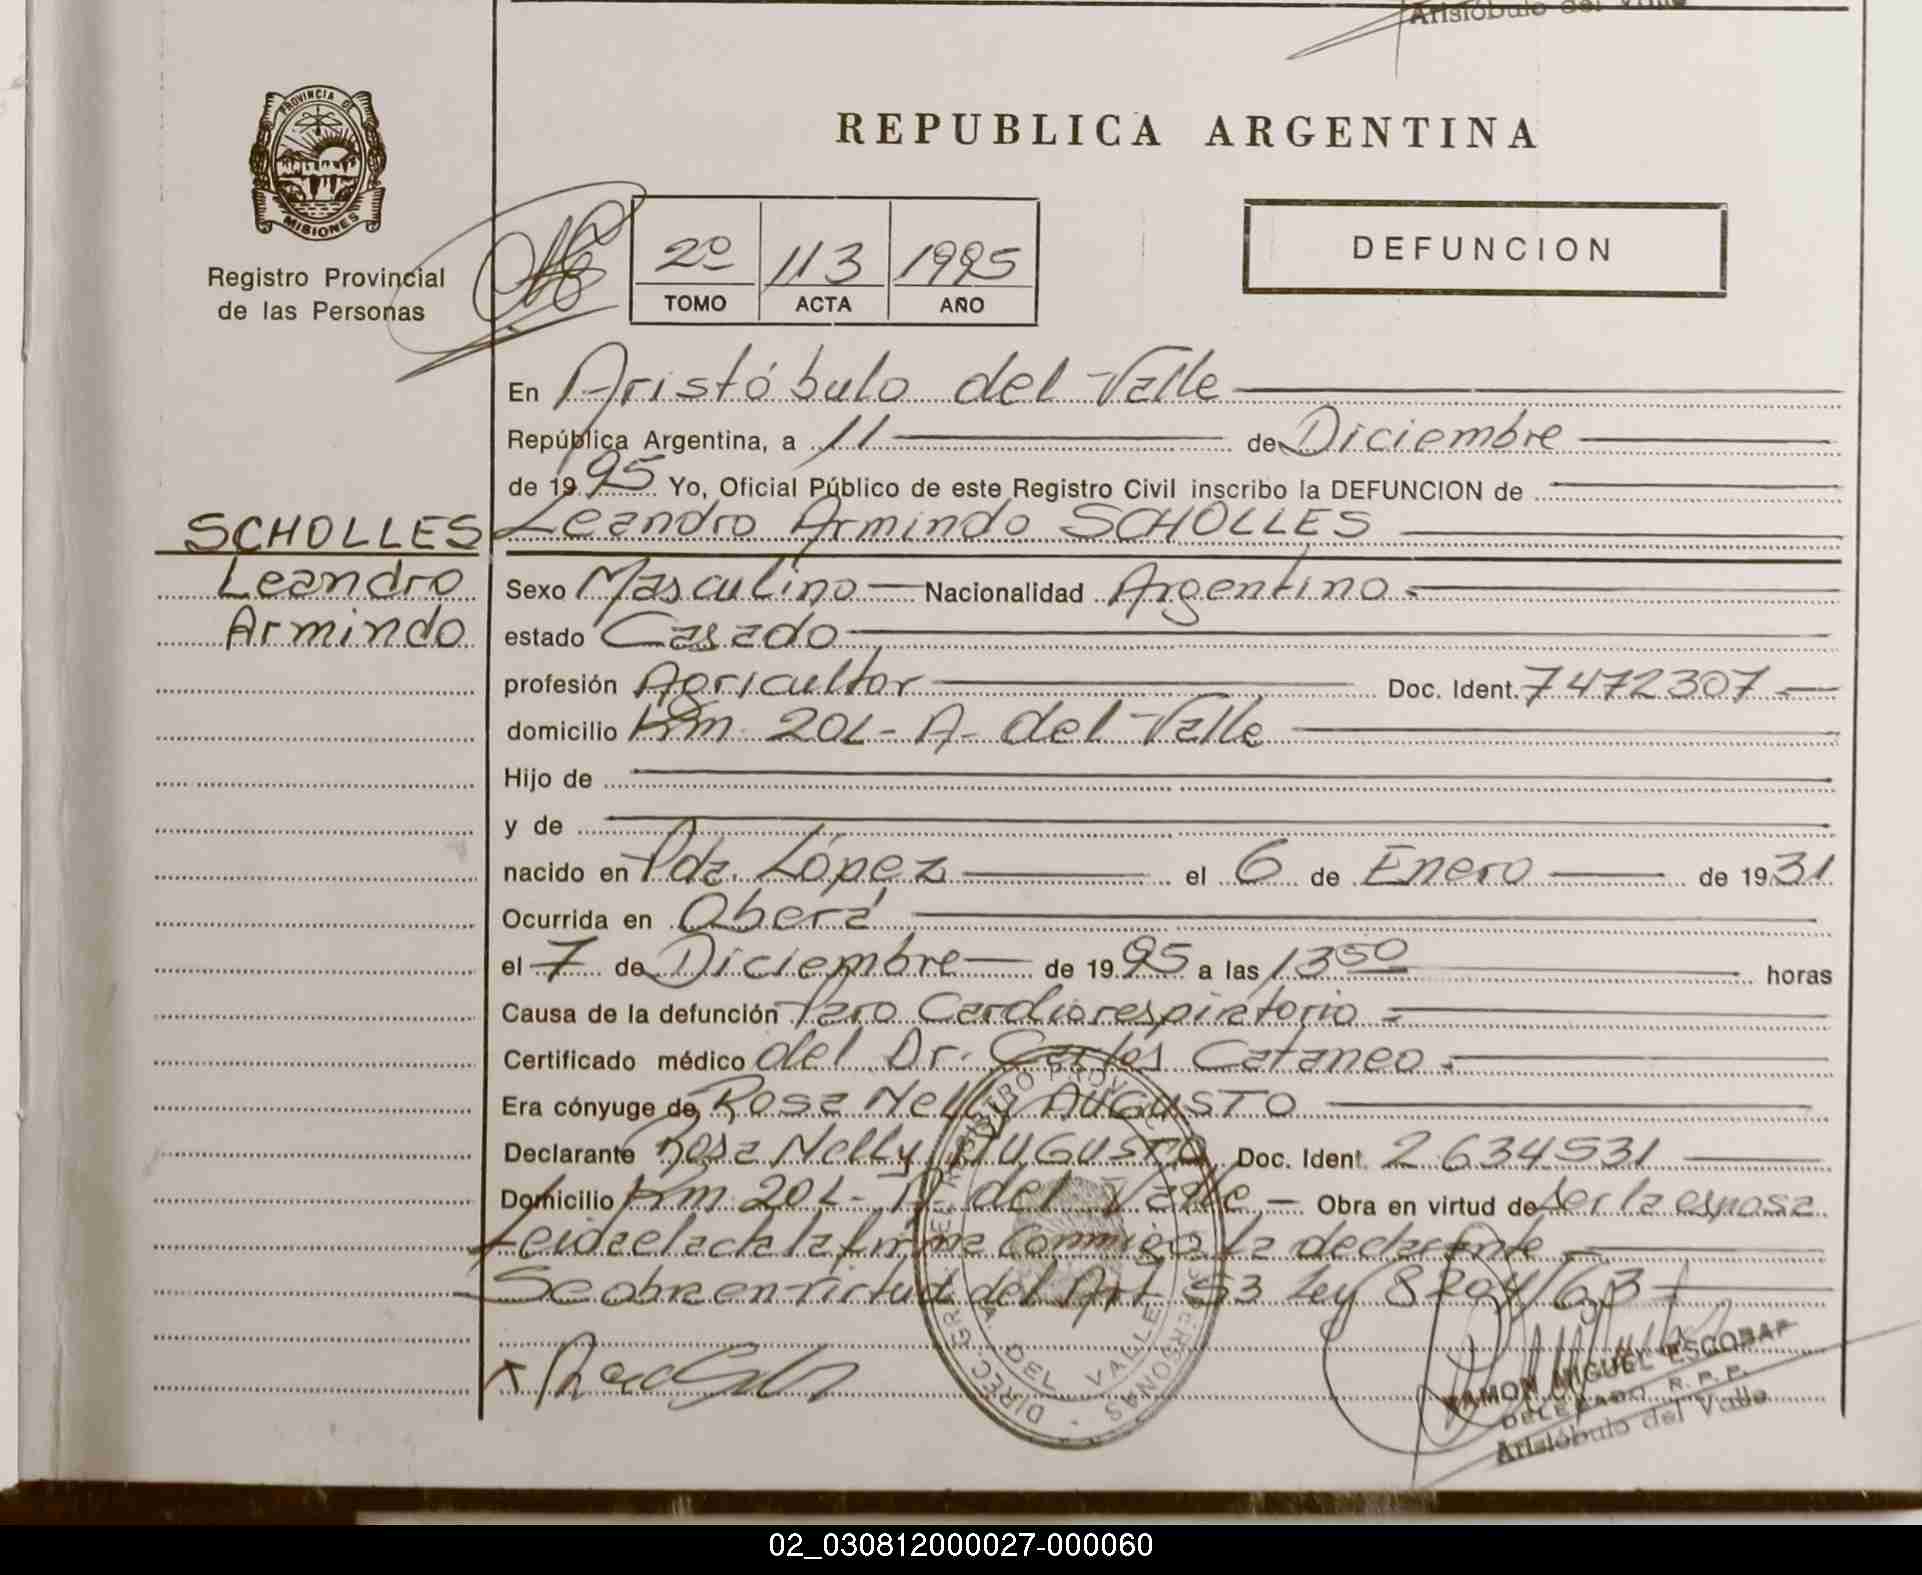 Aristóbulo del Valle
PROVINCIA DE
MISIONES
Registro Provincial
de las Personas
REPUBLICA ARGENTINA
2º 113 1995
TOMO ACTA AÑO
DEFUNCION
En Aristóbulo del Valle
República Argentina, a 11 de Diciembre
de 1995 Yo, Oficial Público de este Registro Civil inscribo la DEFUNCION de
SCHOLLES Leandro Armindo SCHOLLES
Leandro
Armindo
Sexo Masculino Nacionalidad Argentino
estado Casado
profesión Agricultor Doc. Ident. 7472307
domicilio Km. 202 - A. del Valle
Hijo de
y de
nacido en Pda. López el 6 de Enero de 1931
Ocurrida en Oberá
el 7 de Diciembre de 1995 a las 13 50 horas
Causa de la defunción Paro Cardiorespiratorio
Certificado médico del Dr. Carlos Cataneo.
Era cónyuge de Rosa Nelly AUGUSTO
Declarante Rosa Nelly AUGUSTO Doc. Ident. 2634531
Domicilio Km. 202 - A. del Valle - Obra en virtud de ser la esposa
Leida el acta la firma conmigo la declarante
Se obra en virtud del Art. 53 Ley 8204/63
RAMON MIGUEL ESCOBAR
DELEGADO R. P. P.
Aristóbulo del Valle
02_030812000027-000060